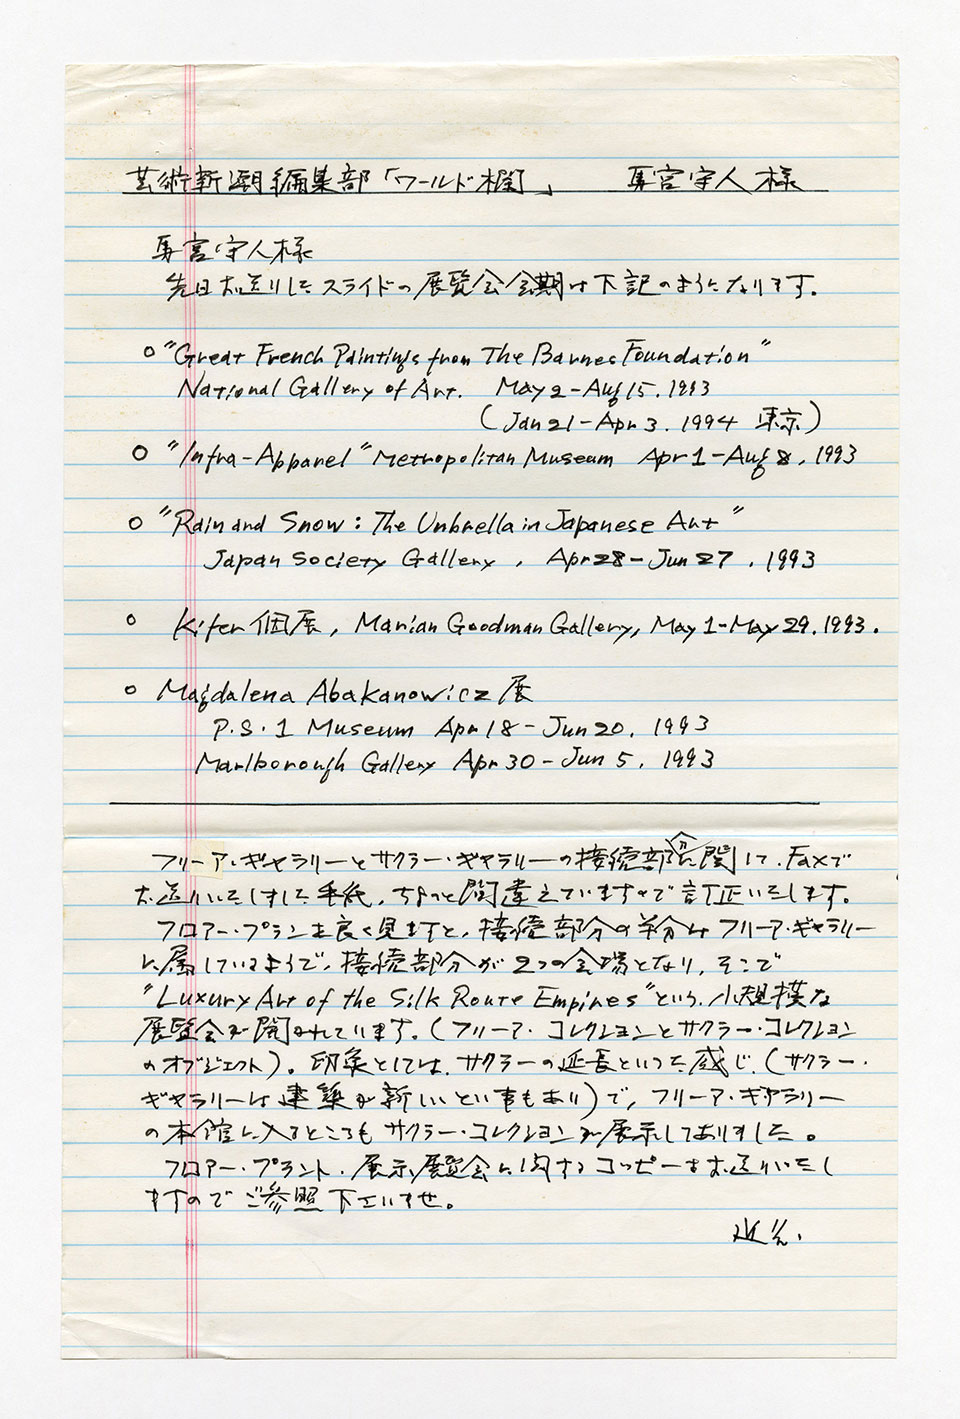 芸術新潮編集部「ワールド欄」 馬宮守人様
馬宮守人様
先日お送りしたスライドの展覧会会期は下記のようになります.
○ "Great French Paintings from The Barnes Foundation"
National Gallery of Art. May 2 - Aug 15. 1993
(Jan 21 - Apr 3. 1994 東京)
○ "Infra-Apparel" Metropolitan Museum Apr 1 - Aug 8, 1993
○ "Rain and Snow: The Unbrella in Japanese Art"
Japan Society Gallery, Apr 28 - Jun 27, 1993
○ Kifer 個展, Marian Goodman Gallery, May 1 - May 29. 1993.
○ Magdalena Abakanowicz 展
P.S.1 Museum Apr 18 - Jun 20, 1993
Marlborough Gallery Apr 30 - Jun 5, 1993
フリーア・ギャラリーとサクラー・ギャラリーの接続部分に関して、Faxで
お送りいたしました手紙、ちょっと間違えていますので訂正いたします。
フロアー・プランを良く見ますと、接続部分の半分はフリーア・ギャラリー
に属しているようで、接続部分が2つの会場となり、そこで
"Luxury Art of the Silk Route Empires"という、小規模な
展覧会が開かれています。(フリーア・コレクションとサクラー・コレクション
のオブジェクト)。印象としては、サクラーの延長といった感じ、(サクラー・
ギャラリーは建築が新しいとい事もあり)で、フリーア・ギャラリー
の本館に入るところもサクラー・コレクションが展示してありました。
フロアー・プラント、展示展覧会に関するコッピーをお送りいたし
ますのでご参照下さいませ。